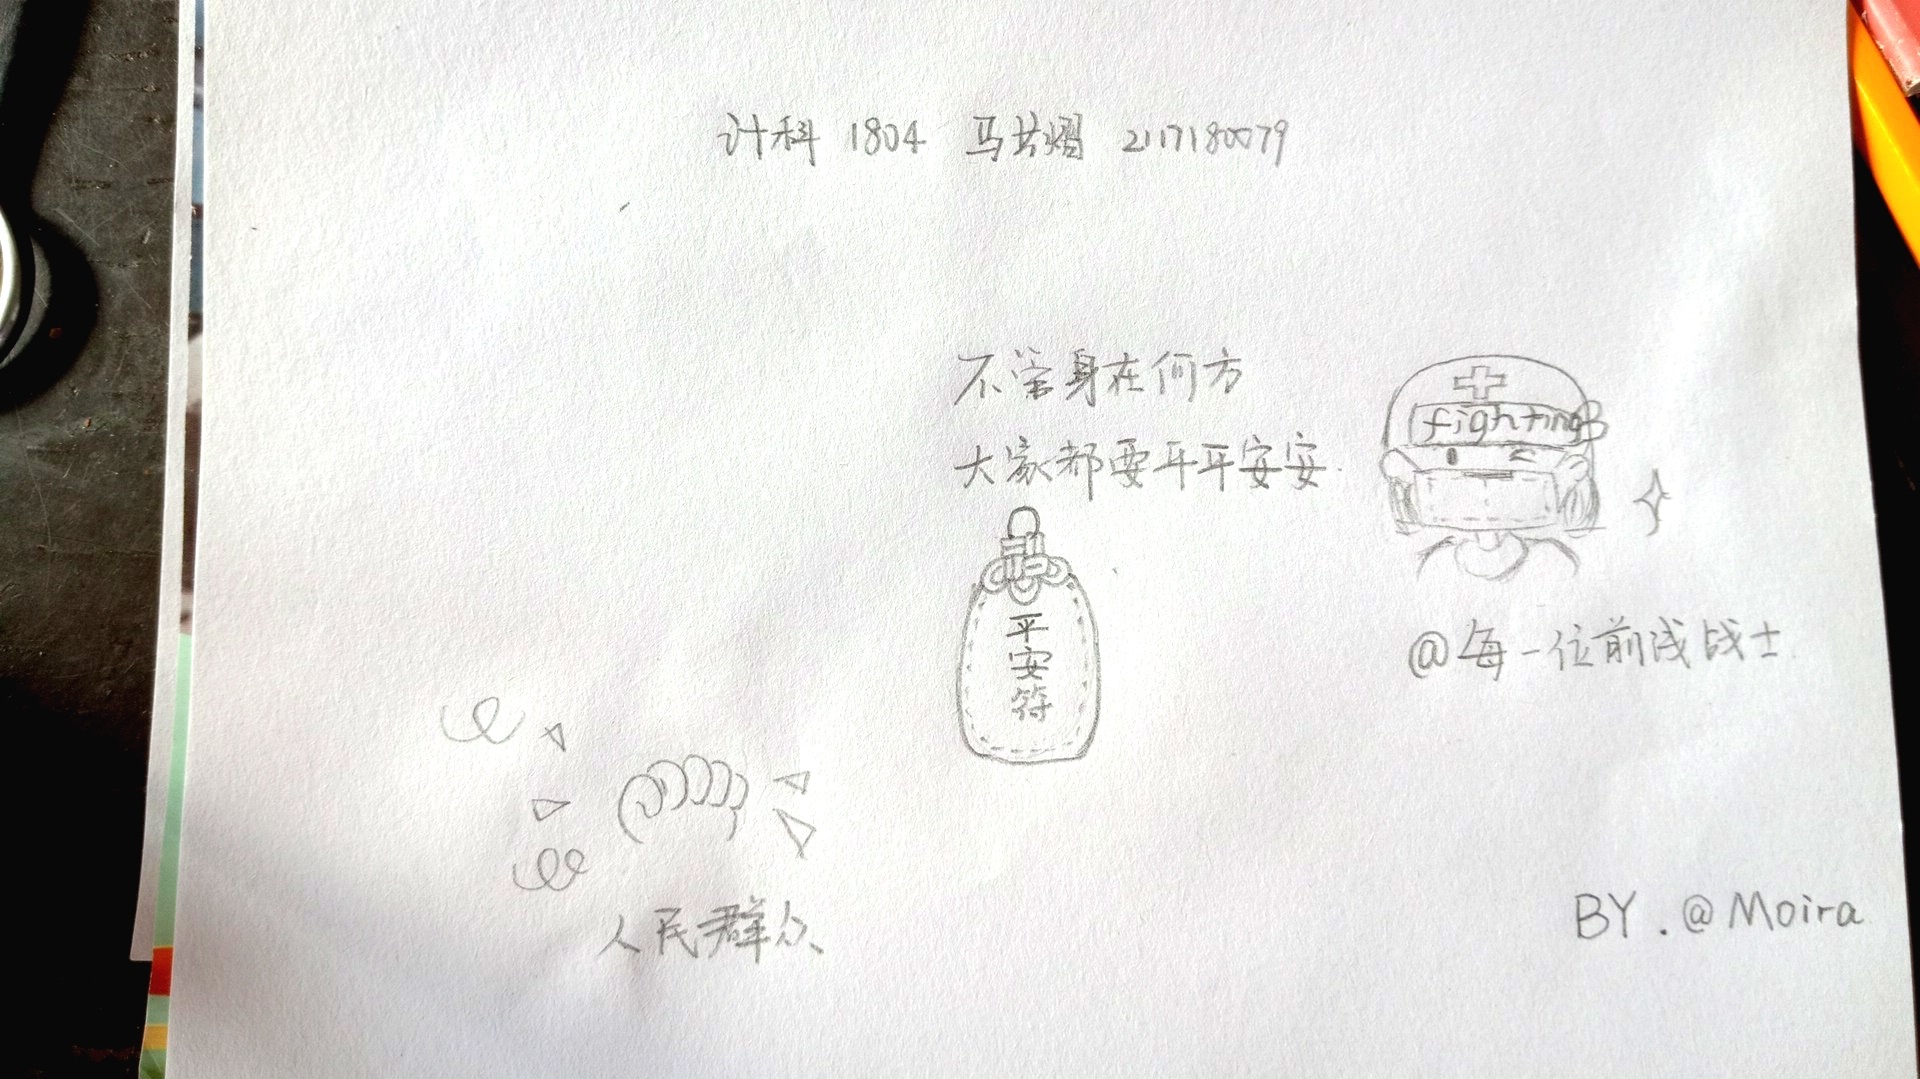 计科 1804 马共熠 2117180079
不管身在何方
大家都要平平安安
fighting
平安符
@每一位前线战士
人民群众
BY.@Moira